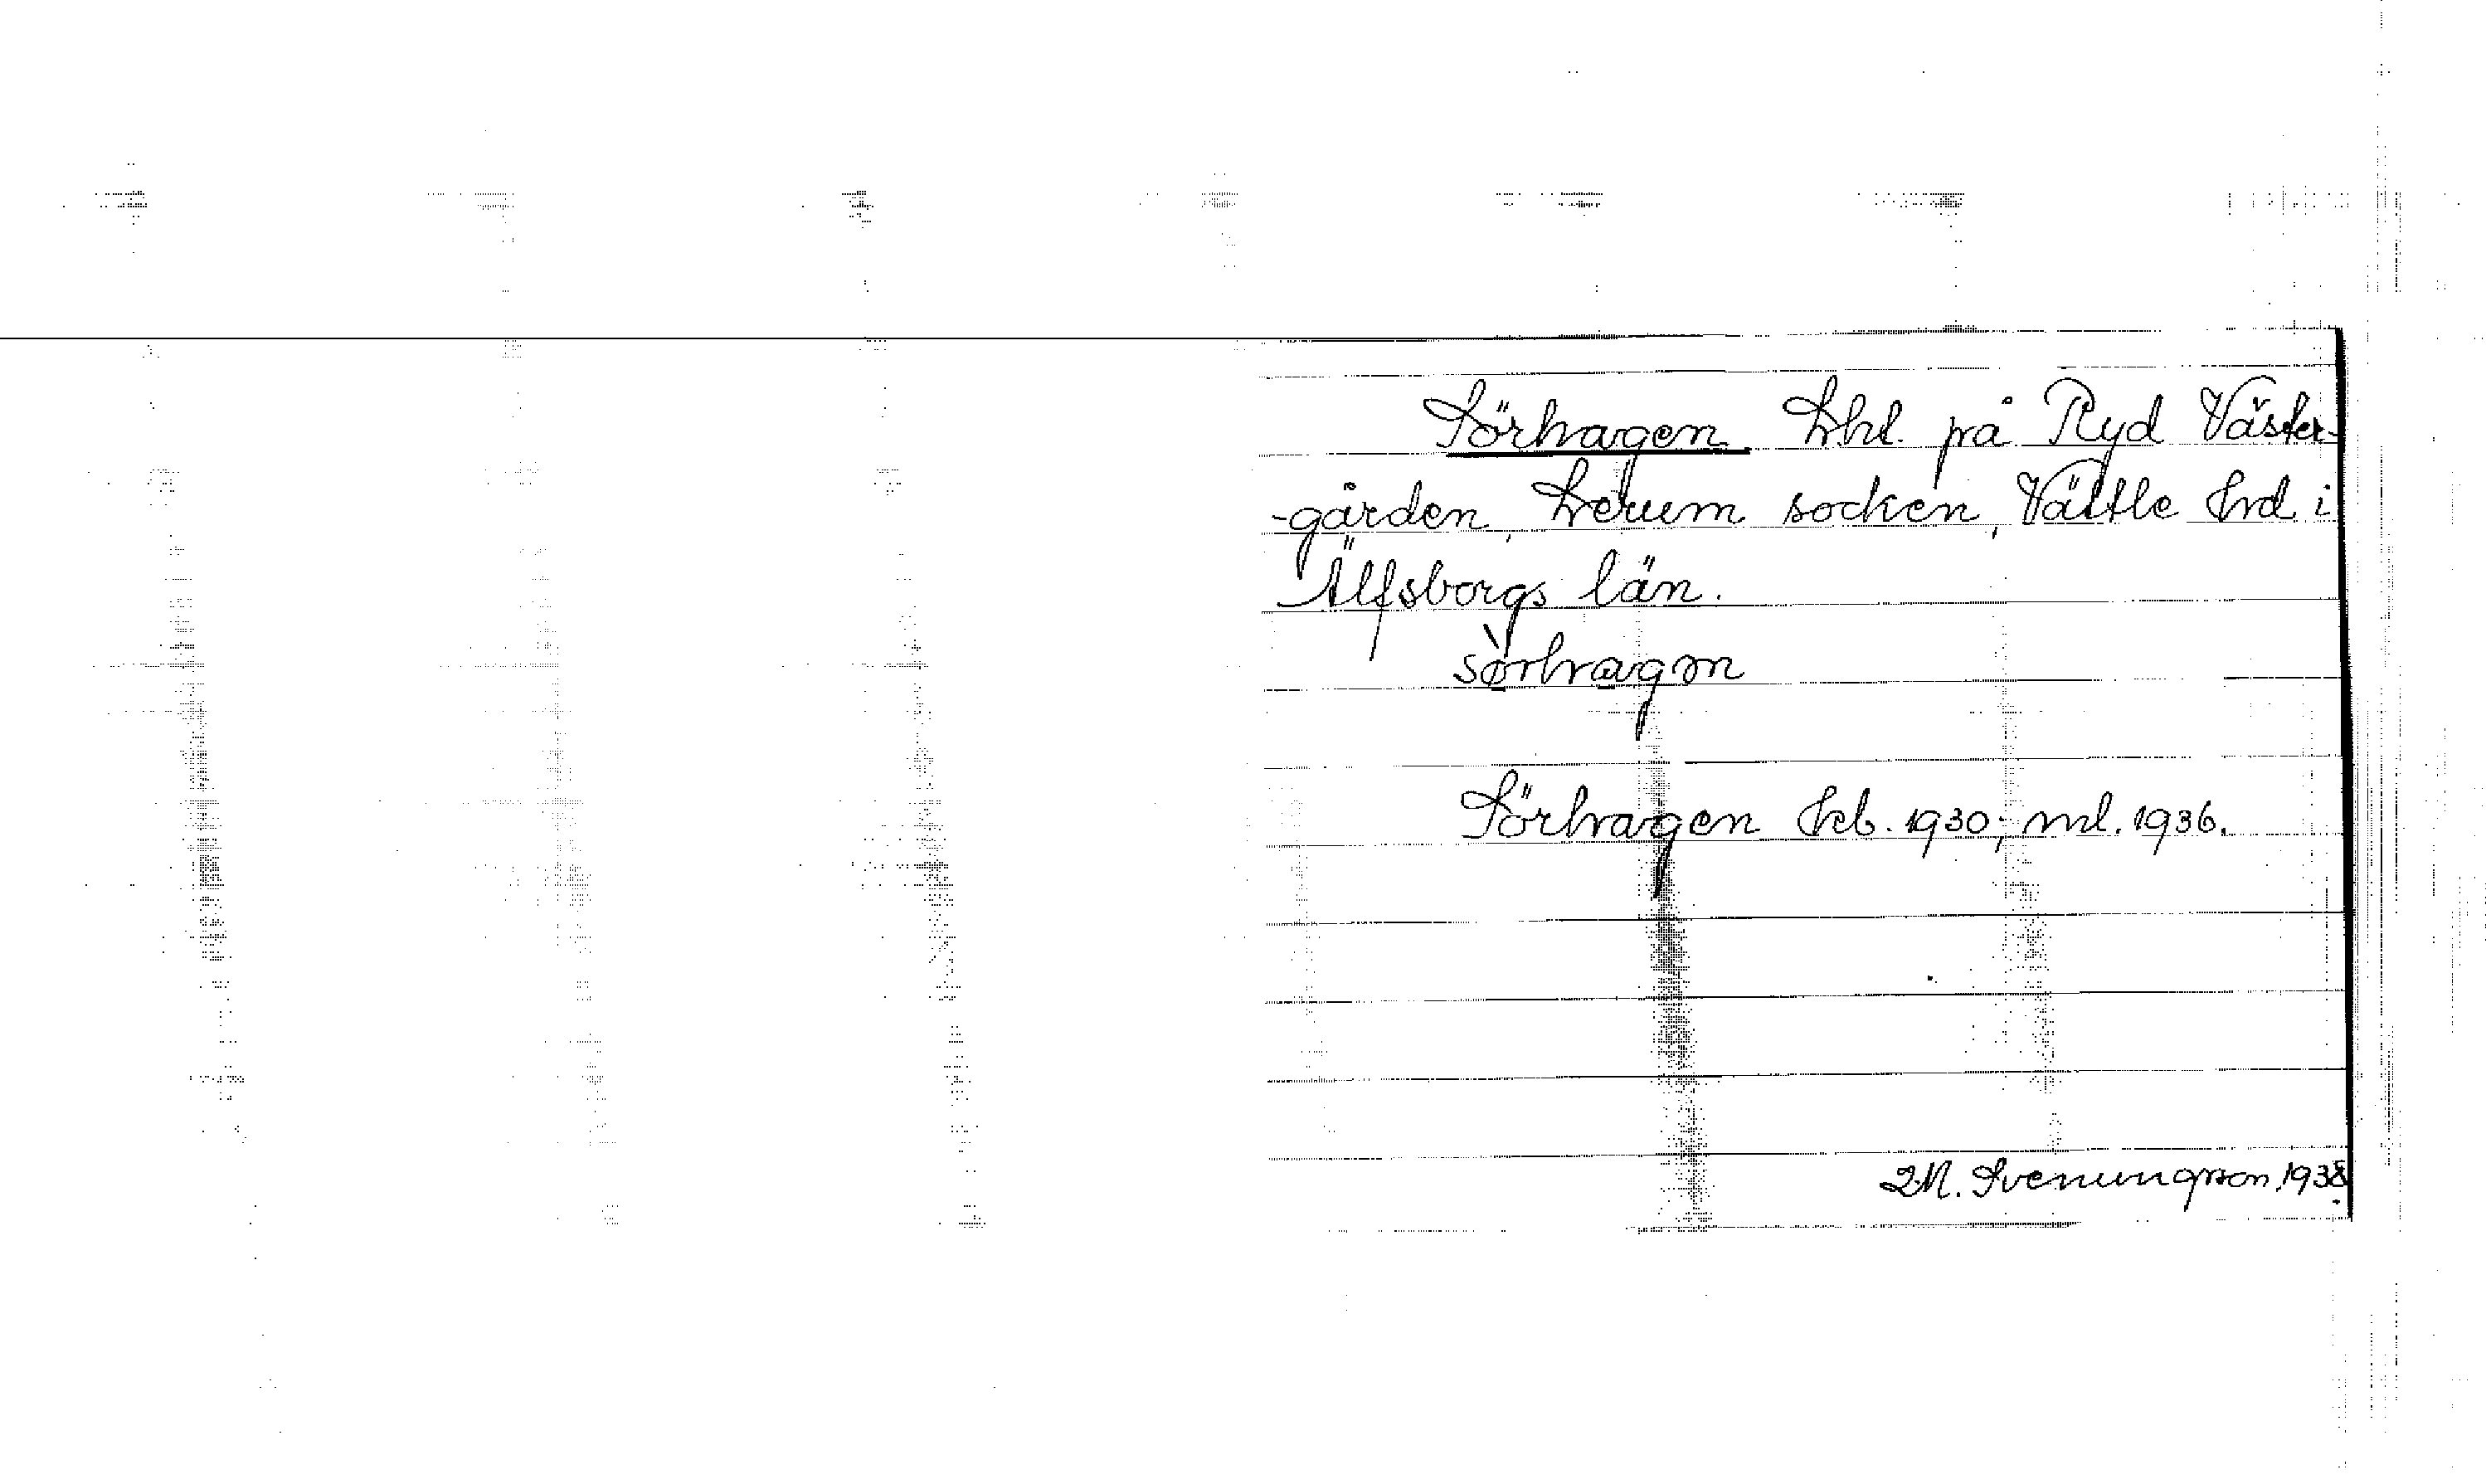 Sörhagen. Lhl. på Ryd Väster-
-gården, Lerum socken, Vättle Hrd i
Älfsborgs län.
sø̀rhagən
Sörhagen Jrb. 1930; ml. 1936.
Svenungsson, 1938